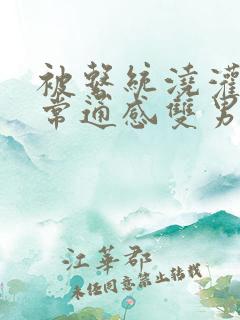 被繫統澆灌
常通感雙男
江華郡
未经同意禁止转载